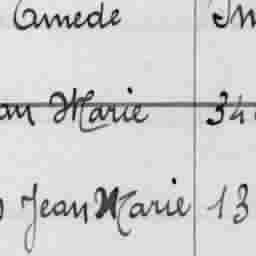 Amede
Marie 34
Jean Marie 13